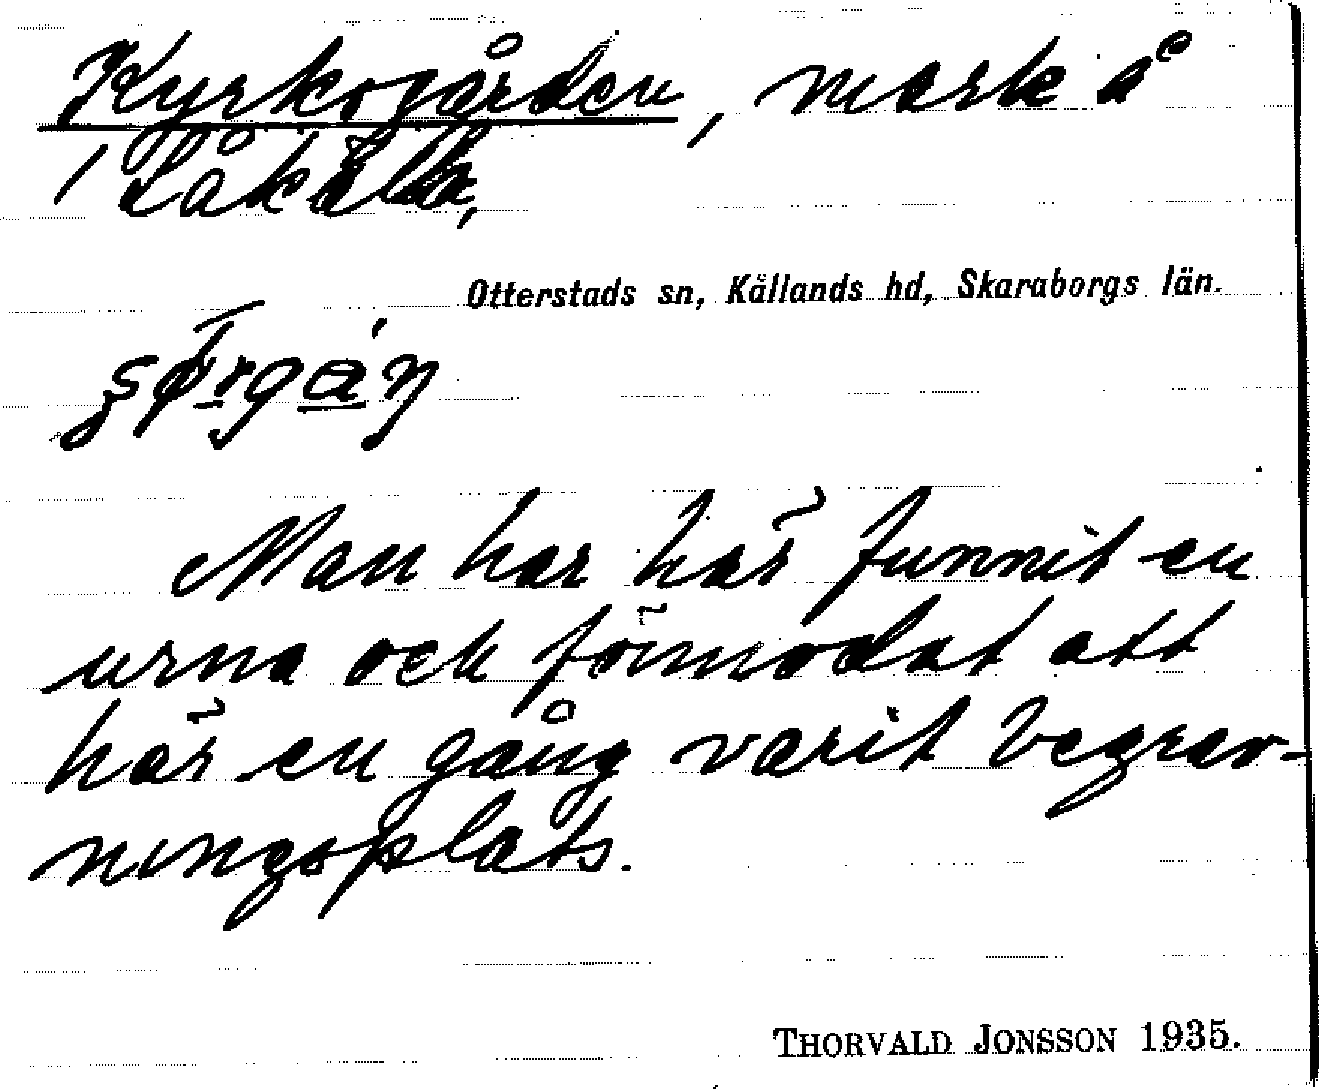 Kyrkogården, mark å
1 Låkälla,
Otterstads sn, Kållands hd, Skaraborgs län.
Man har här funnit en
urna och förmodat att
här en gång varit begrav-
ningsplats.
THORVALD JONSSON 1935.